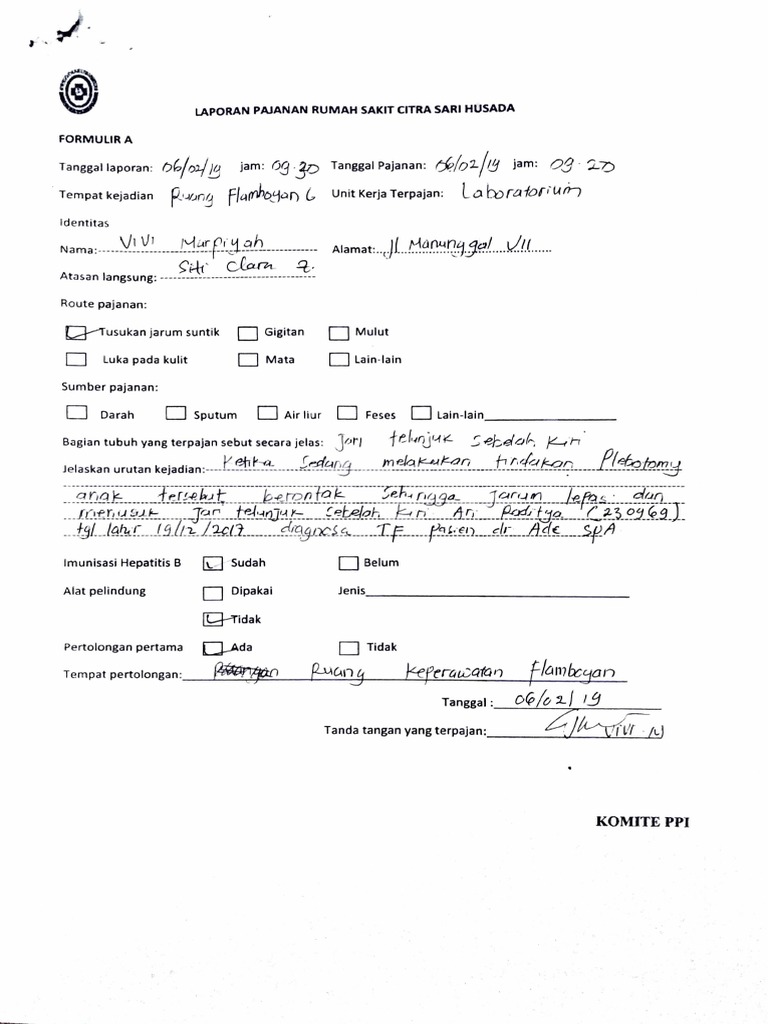 LAPORAN PAJANAN RUMAH SAKIT CITRA SARI HUSADA
FORMULIR A
Tanggal laporan: 06/02/19 jam: 09.30 Tanggal Pajanan: 06/02/19 jam: 09-20
Tempat kejadian Ruang Flamboyan 6 Unit Kerja Terpajan: Laboratorium
Identitas
Nama: ViVi Murpiyah Alamat: Jl Manunggal VII
Atasan langsung: Siti Clara Z.
Route pajanan:
Tusukan jarum suntik Gigitan Mulut
Luka pada kulit Mata Lain-lain
Sumber pajanan:
Darah Sputum Air liur Feses Lain-lain
Bagian tubuh yang terpajan sebut secara jelas: Jari telunjuk sebelah kiri
Jelaskan urutan kejadian: Ketika sedang melakukan tindakan Plebotomy
anak tersebut berontak sehingga jarum lepas dan
menusuk jari telunjuk sebelah kiri An Raditya (230969)
tgl lahir 19/12/2017 diagnosa TF pasien dr Ade SpA
Imunisasi Hepatitis B Sudah Belum
Alat pelindung Dipakai Jenis
Tidak
Pertolongan pertama Ada Tidak
Tempat pertolongan: Ruang Keperawatan Flamboyan
Tanggal : 06/02/19
Tanda tangan yang terpajan: ViVi . M
KOMITE PPI